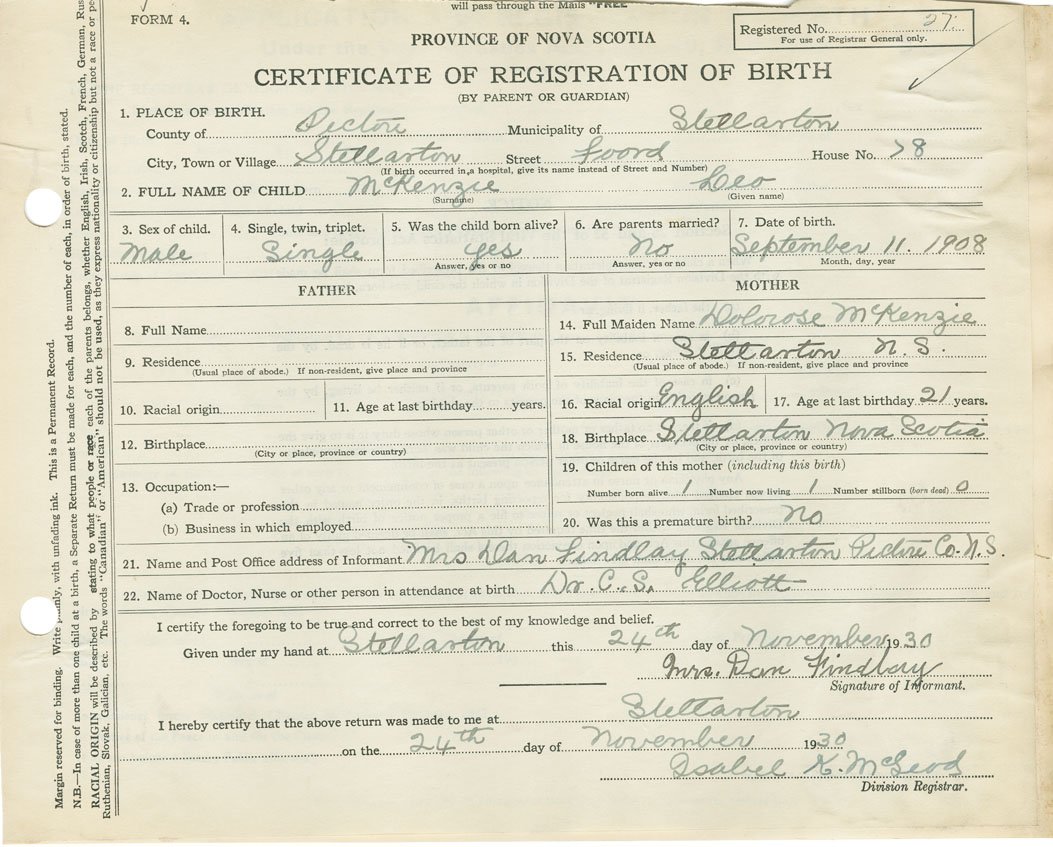 will pass through the Mails "FREE
FORM 4.
PROVINCE OF NOVA SCOTIA
Registered No. 27.
For use of Registrar General only.
CERTIFICATE OF REGISTRATION OF BIRTH
(BY PARENT OR GUARDIAN)
1. PLACE OF BIRTH.
County of Pictou Municipality of Stellarton
City, Town or Village Stellarton Street Foord House No. 78
(If birth occurred in a hospital, give its name instead of Street and Number)
2. FULL NAME OF CHILD McKenzie Leo
(Surname) (Given name)
3. Sex of child. 4. Single, twin, triplet. 5. Was the child born alive? 6. Are parents married? 7. Date of birth.
Male Single yes No September 11. 1908
Answer, yes or no Answer, yes or no Month, day, year
FATHER
8. Full Name
9. Residence
(Usual place of abode.) If non-resident, give place and province
10. Racial origin 11. Age at last birthday years.
12. Birthplace
(City or place, province or country)
13. Occupation:—
(a) Trade or profession
(b) Business in which employed
MOTHER
14. Full Maiden Name Dolorose McKenzie
15. Residence Stellarton N.S.
(Usual place of abode.) If non-resident, give place and province
16. Racial origin English 17. Age at last birthday 21 years.
18. Birthplace Stellarton Nova Scotia
(City or place, province or country)
19. Children of this mother (including this birth)
Number born alive 1 Number now living 1 Number stillborn (born dead) 0
20. Was this a premature birth? No
21. Name and Post Office address of Informant Mrs Dan Findlay Stellarton Pictou Co. N.S.
22. Name of Doctor, Nurse or other person in attendance at birth Dr. C. S. Elliott
I certify the foregoing to be true and correct to the best of my knowledge and belief.
Given under my hand at Stellarton this 24th day of November 1930
Mrs. Dan Findlay
Signature of Informant.
I hereby certify that the above return was made to me at Stellarton
on the 24th day of November 1930
Isabel K. McLeod
Division Registrar.
Margin reserved for binding. Write plainly, with unfading ink. This is a Permanent Record.
N.B.—In case of more than one child at a birth, a Separate Return must be made for each, and the number of each, in order of birth, stated.
RACIAL ORIGIN will be described by stating to what people or race each of the parents belongs, whether English, Irish, Scotch, French, German, Rus
Ruthenian, Slovak, Galician, etc. The words "Canadian" or "American" should not be used, as they express nationality or citizenship but not a race or pe